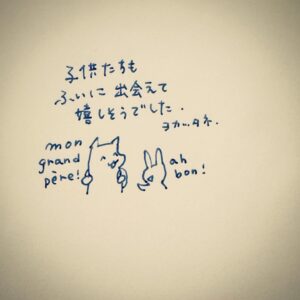 子供たちも
ふいに出会えて
嬉しそうでした.
ヨカッタネ.
mon
grand
père!
ah
bon!